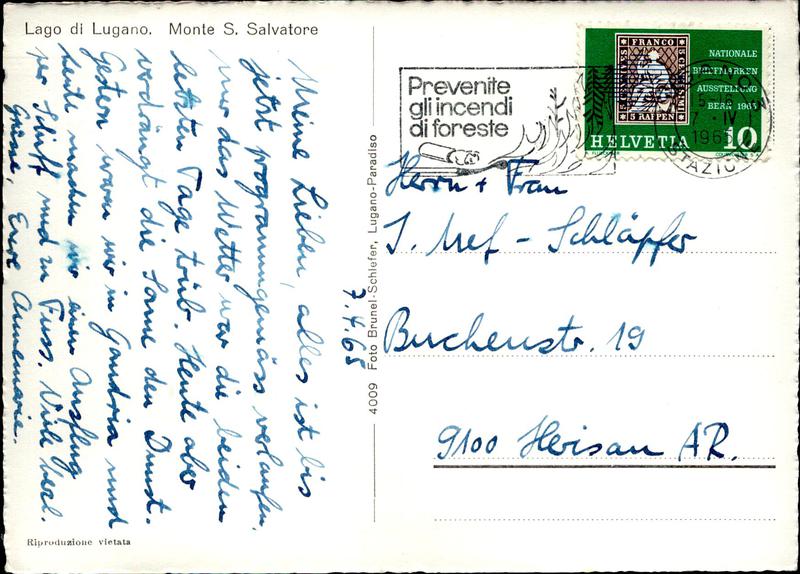 Lago di Lugano. Monte S. Salvatore
Meine Lieben, alles ist bis
jetzt programmgemäss verlaufen,
nur das Wetter war die beiden
letzten Tage trüb. Heute aber
verdrängt die Sonne den Dunst.
Gestern waren wir in Gandria und
heute machen wir einen Ausflug
per Schiff und zu Fuss. Viele herzl.
Grüsse, Eure Annemarie.
Riproduzione vietata
7.4.65
4009 Foto Brunel-Schiefer, Lugano-Paradiso
Prevenite
gli incendi
di foreste
FRANCO
5 RAPPEN
NATIONALE
BRIEFMARKEN
AUSSTELLUNG
BERN 1965
HELVETIA 10
IV
1965
STAZIONE
Herrn + Frau
J. Nef - Schläpfer
Buchenstr. 19
9100 Herisau AR.